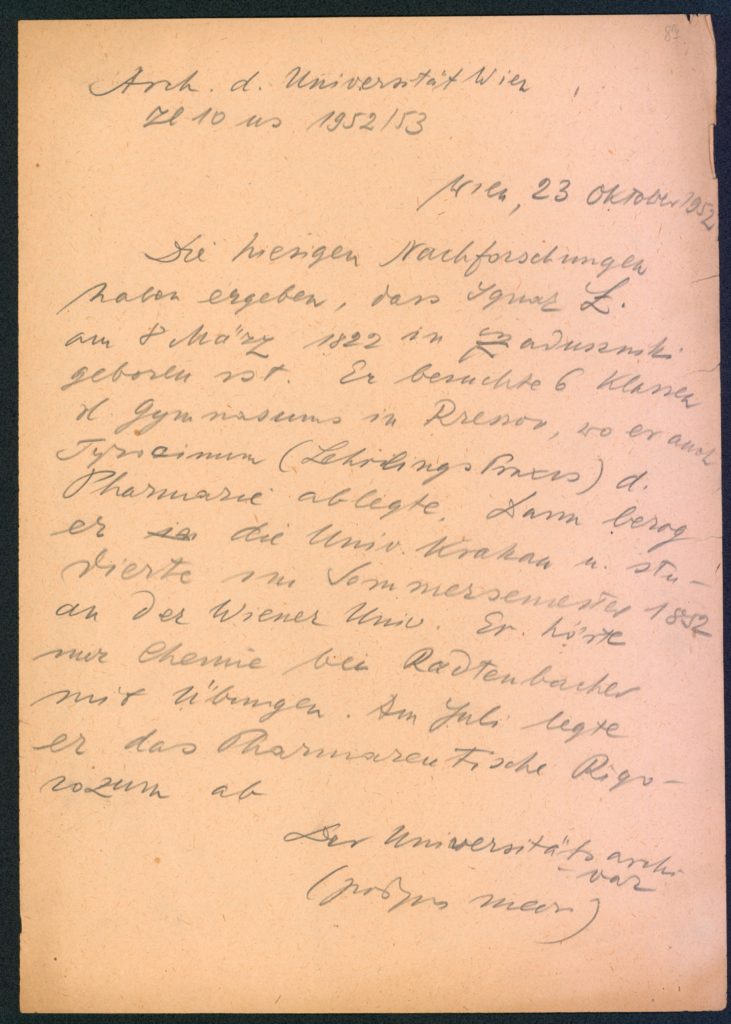 87
Arch. d. Universität Wien
Zl 10 us 1952/53
Wien, 23 Oktober 1952
Die hiesigen Nachforschungen
haben ergeben, dass Ignaz Ł.
am 8 März 1822 in Zaduszniki
geboren ist. Er besuchte 6 Klassen
d. Gymnasiums in Rzeszov, wo er auch
Tyrocinum (Lehrlings Praxis) d.
Pharmazie ablegte. Dann bezog
er die Univ. Krakau u. stu-
dierte im Sommersemester 1852
an der Wiener Univ. Er hörte
nur Chemie bei Redtenbacher
mit Übungen. Im Juli legte
er das Pharmazeutische Rigo-
rozum ab
Der Universitätsarchi-
var
(podpis niecz)